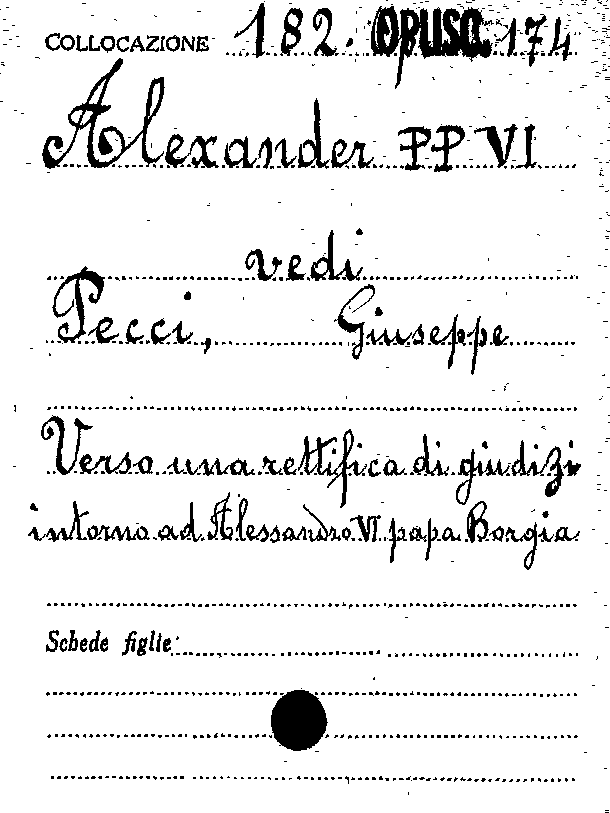 COLLOCAZIONE 182. OPUSC. 174
Alexander PP VI
vedi
Pecci, Giuseppe
Verso una rettifica di giudizi
intorno ad Alessandro VI papa Borgia
Schede figlie: